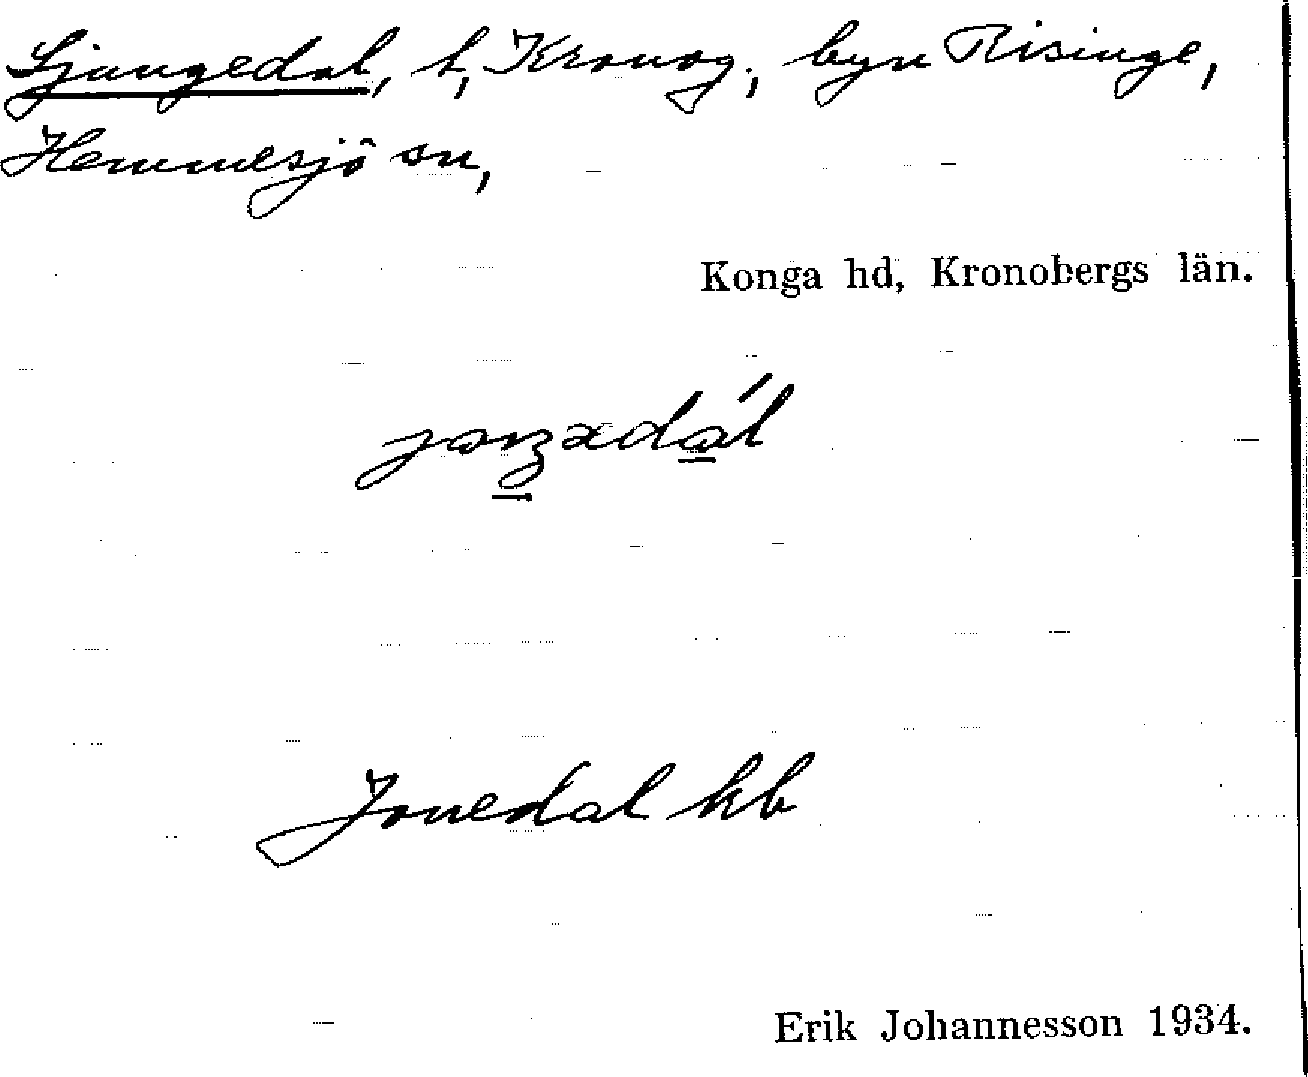 Ljungedal, t, Kronog., byn Risinge,
Hemmesjö sn,
Konga hd, Kronobergs län.
Jonedal kb
Erik Johannesson 1934.